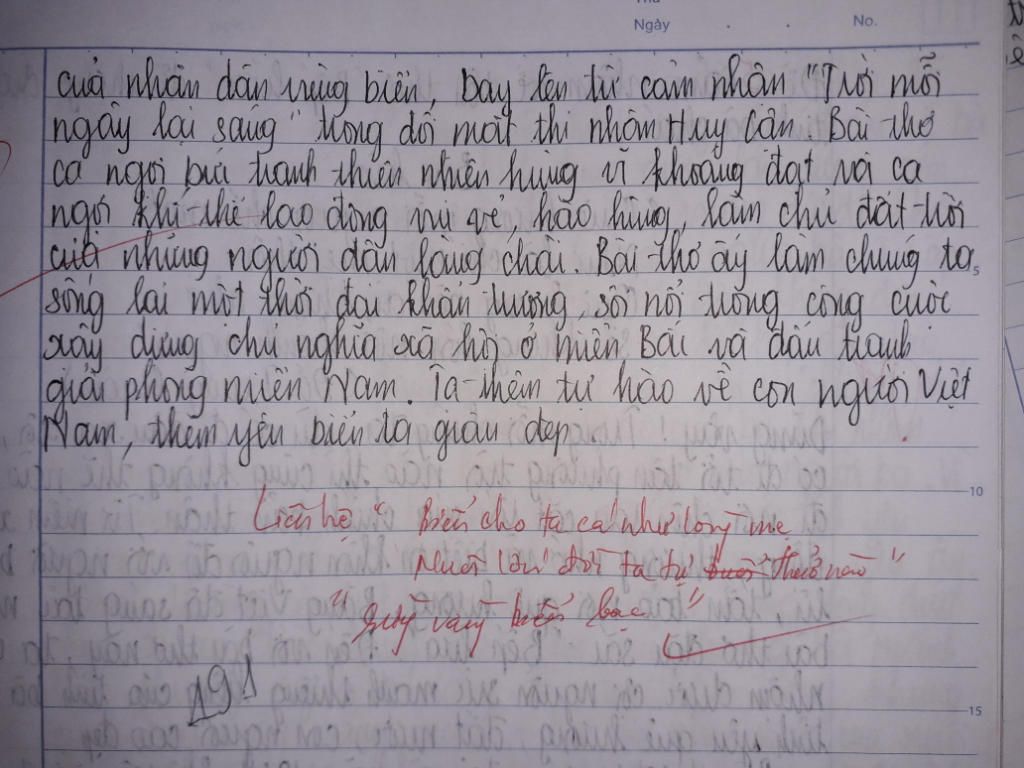 Thứ
Ngày . . No.
của nhân dân vùng biển, bay lên từ cảm nhận "Trời mỗi
ngày lại sáng" trong đôi mắt thi nhân Huy Cận. Bài thơ
ca ngợi bức tranh thiên nhiên hùng vĩ khoáng đạt và ca
ngợi khí thế lao động vui vẻ, hào hùng, làm chủ đất trời
của những người dân làng chài. Bài thơ ấy làm chúng ta
5
sống lại một thời đại khẩn trương, sôi nổi trong công cuộc
xây dựng chủ nghĩa xã hội ở miền Bắc và đấu tranh
giải phóng miền Nam. Ta thêm tự hào về con người Việt
Nam, thêm yêu biển ta giàu đẹp.
10
Liên hệ " Biển cho ta cá như lòng mẹ
Nuôi lớn đời ta tự buổi thuở nào "
" rừng vàng biển bạc "
191
15